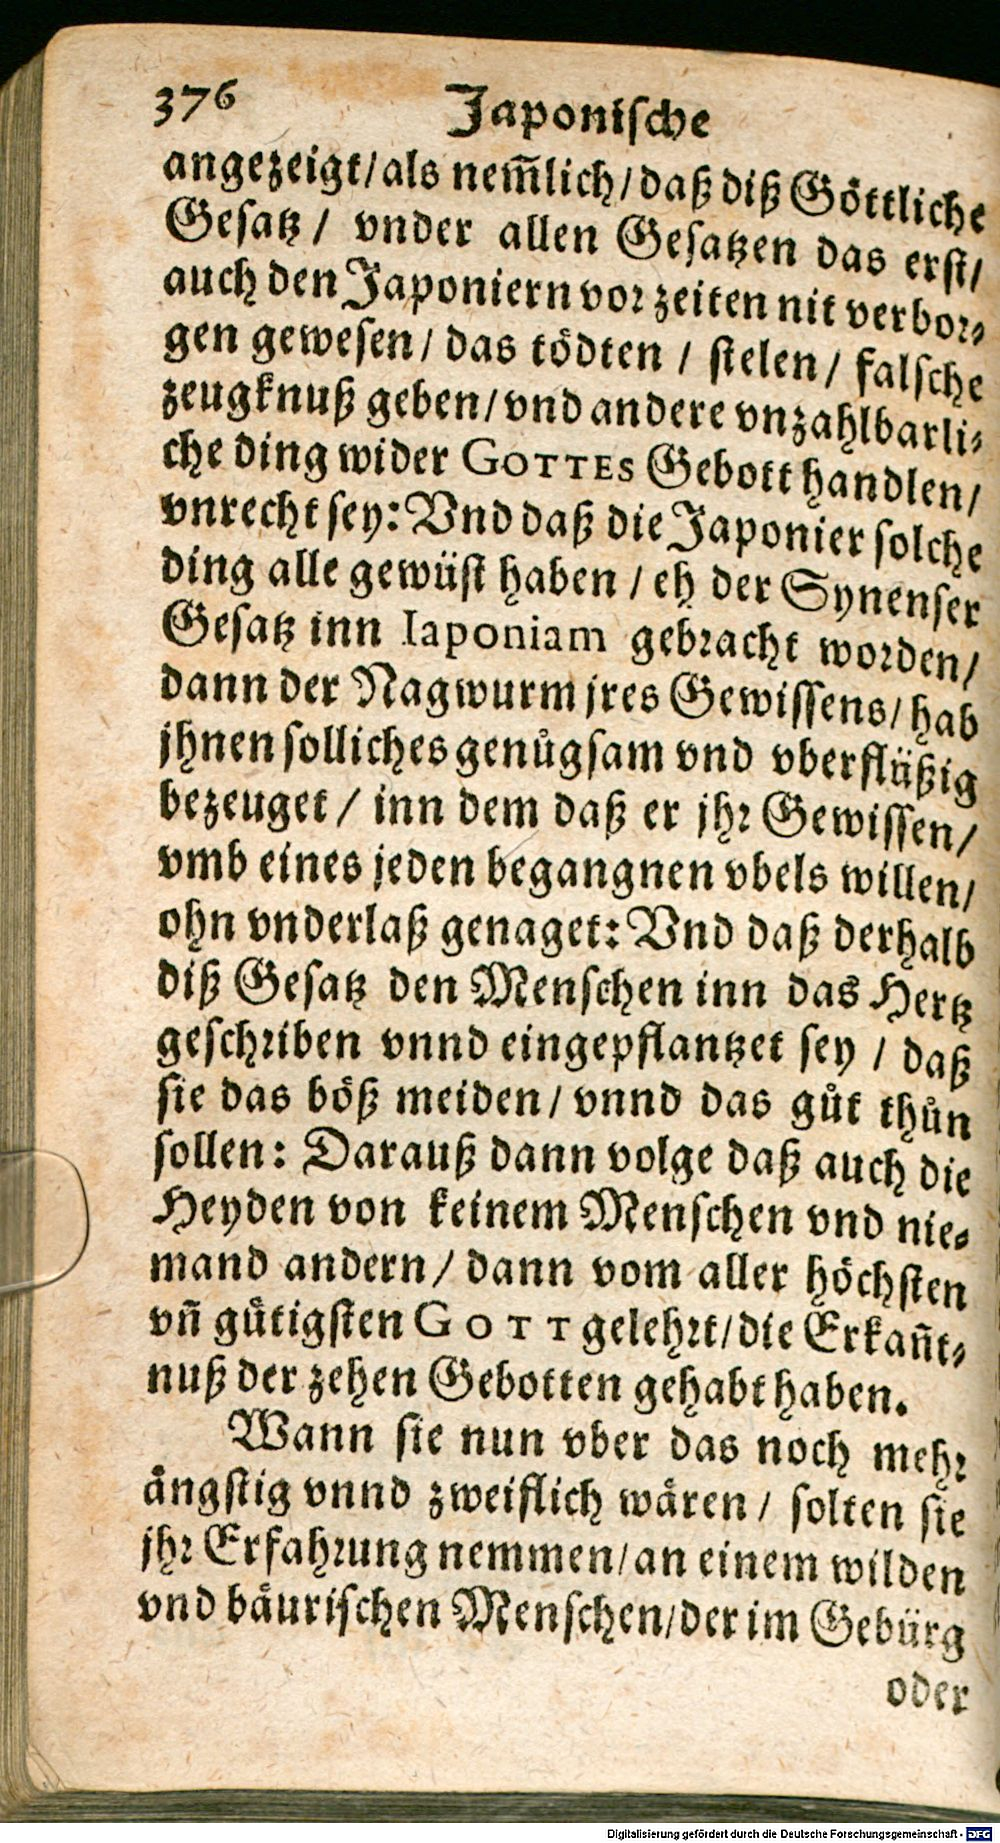 376 Japonische
angezeigt/als nem̃lich/daß diß Göttliche
Gesatz/ vnder allen Gesatzen das erst/
auch den Japoniern vor zeiten nit verbor-
gen gewesen/das tödten / stelen/ falsche
zeugknuß geben/vnd andere vnzahlbarli-
che ding wider GOTTES Gebott handlen/
vnrecht sey: Vnd daß die Japonier solche
ding alle gewüst haben / eh der Synenser
Gesatz inn Iaponiam gebracht worden/
dann der Nagwurm jres Gewissens/hab
jhnen solliches genůgsam vnd vberflüßig
bezeuget / inn dem daß er jhr Gewissen/
vmb eines jeden begangnen vbels willen/
ohn vnderlaß genaget: Vnd daß derhalb
diß Gesatz den Menschen inn das Hertz
geschriben vnnd eingepflantzet sey / daß
sie das böß meiden/vnnd das gůt thůn
sollen: Darauß dann volge daß auch die
Heyden von keinem Menschen vnd nie-
mand andern/dann vom aller höchsten
vñ gütigsten GOTT gelehrt/die Erkañt-
nuß der zehen Gebotten gehabt haben.
Wann sie nun vber das noch mehr
ängstig vnnd zweiflich wären / solten sie
jhr Erfahrung nemmen/an einem wilden
vnd bäurischen Menschen/der im Gebürg
oder
Digitalisierung gefördert durch die Deutsche Forschungsgemeinschaft - DFG